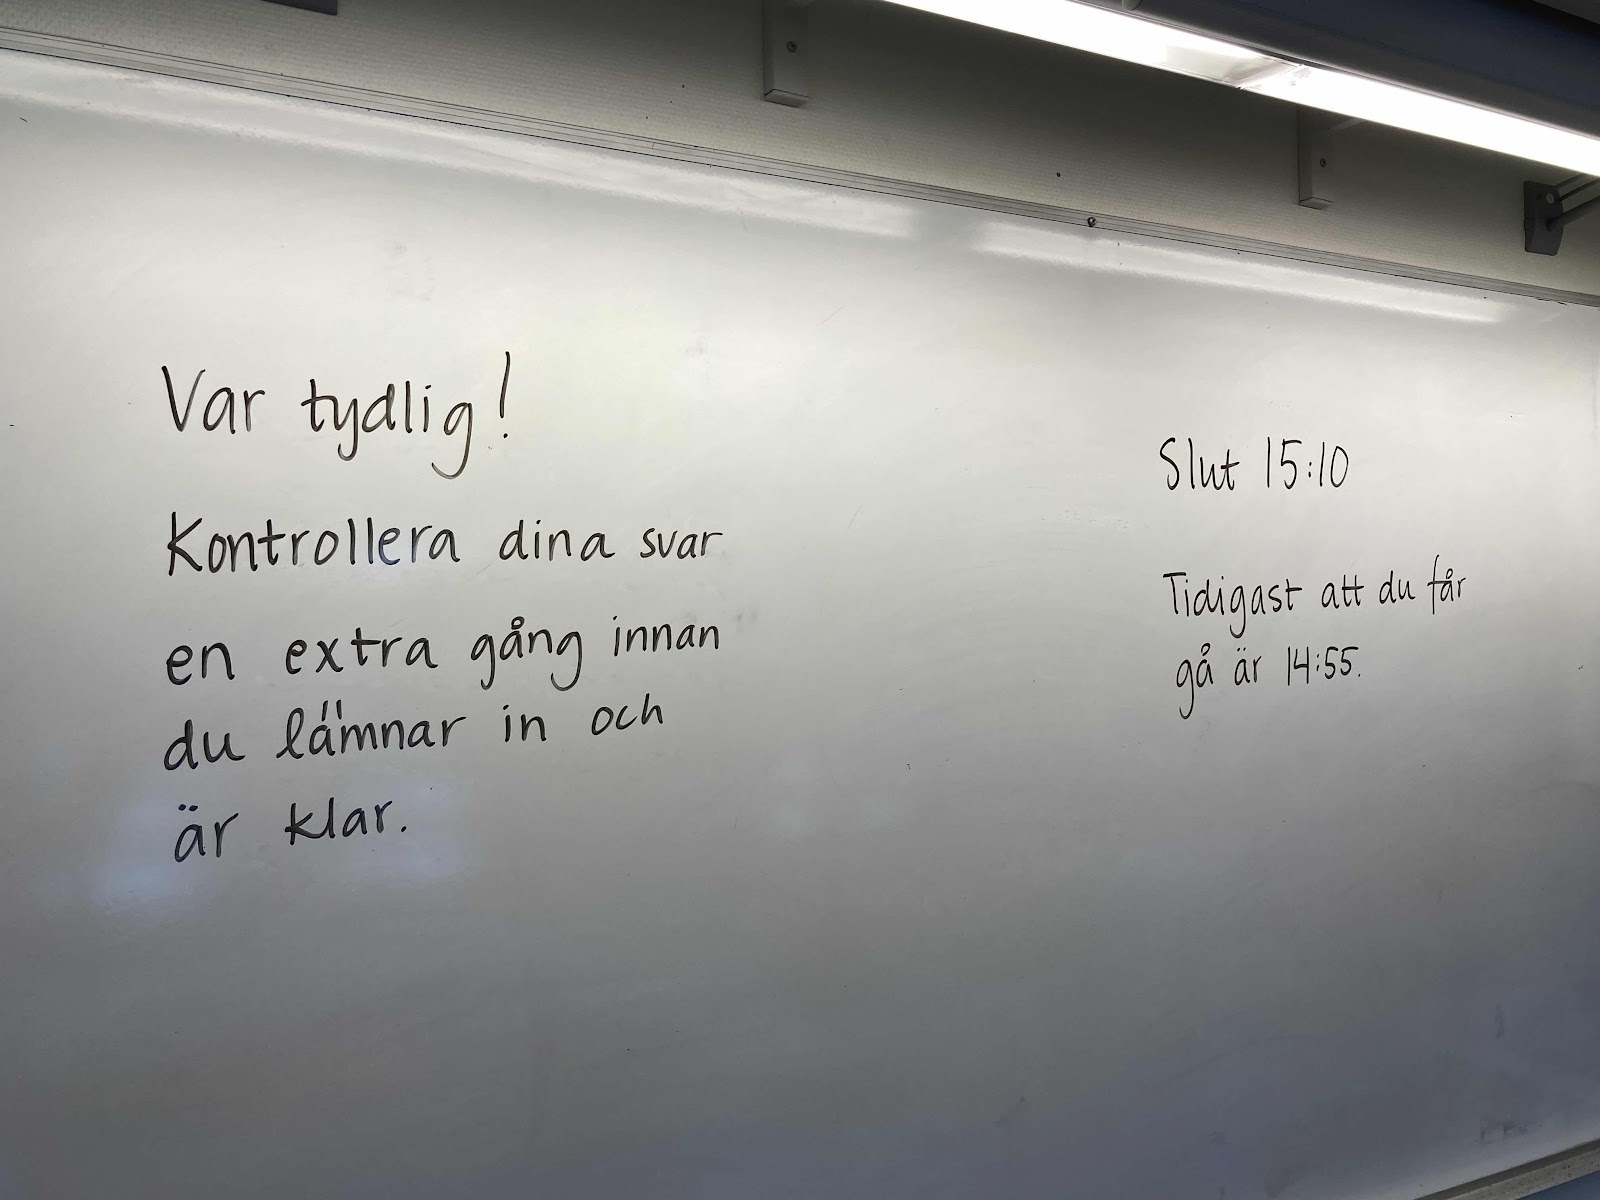 Var tydlig!
Kontrollera dina svar
en extra gång innan
du lämnar in och
är klar.
Slut 15:10
Tidigast att du får
gå är 14:55.